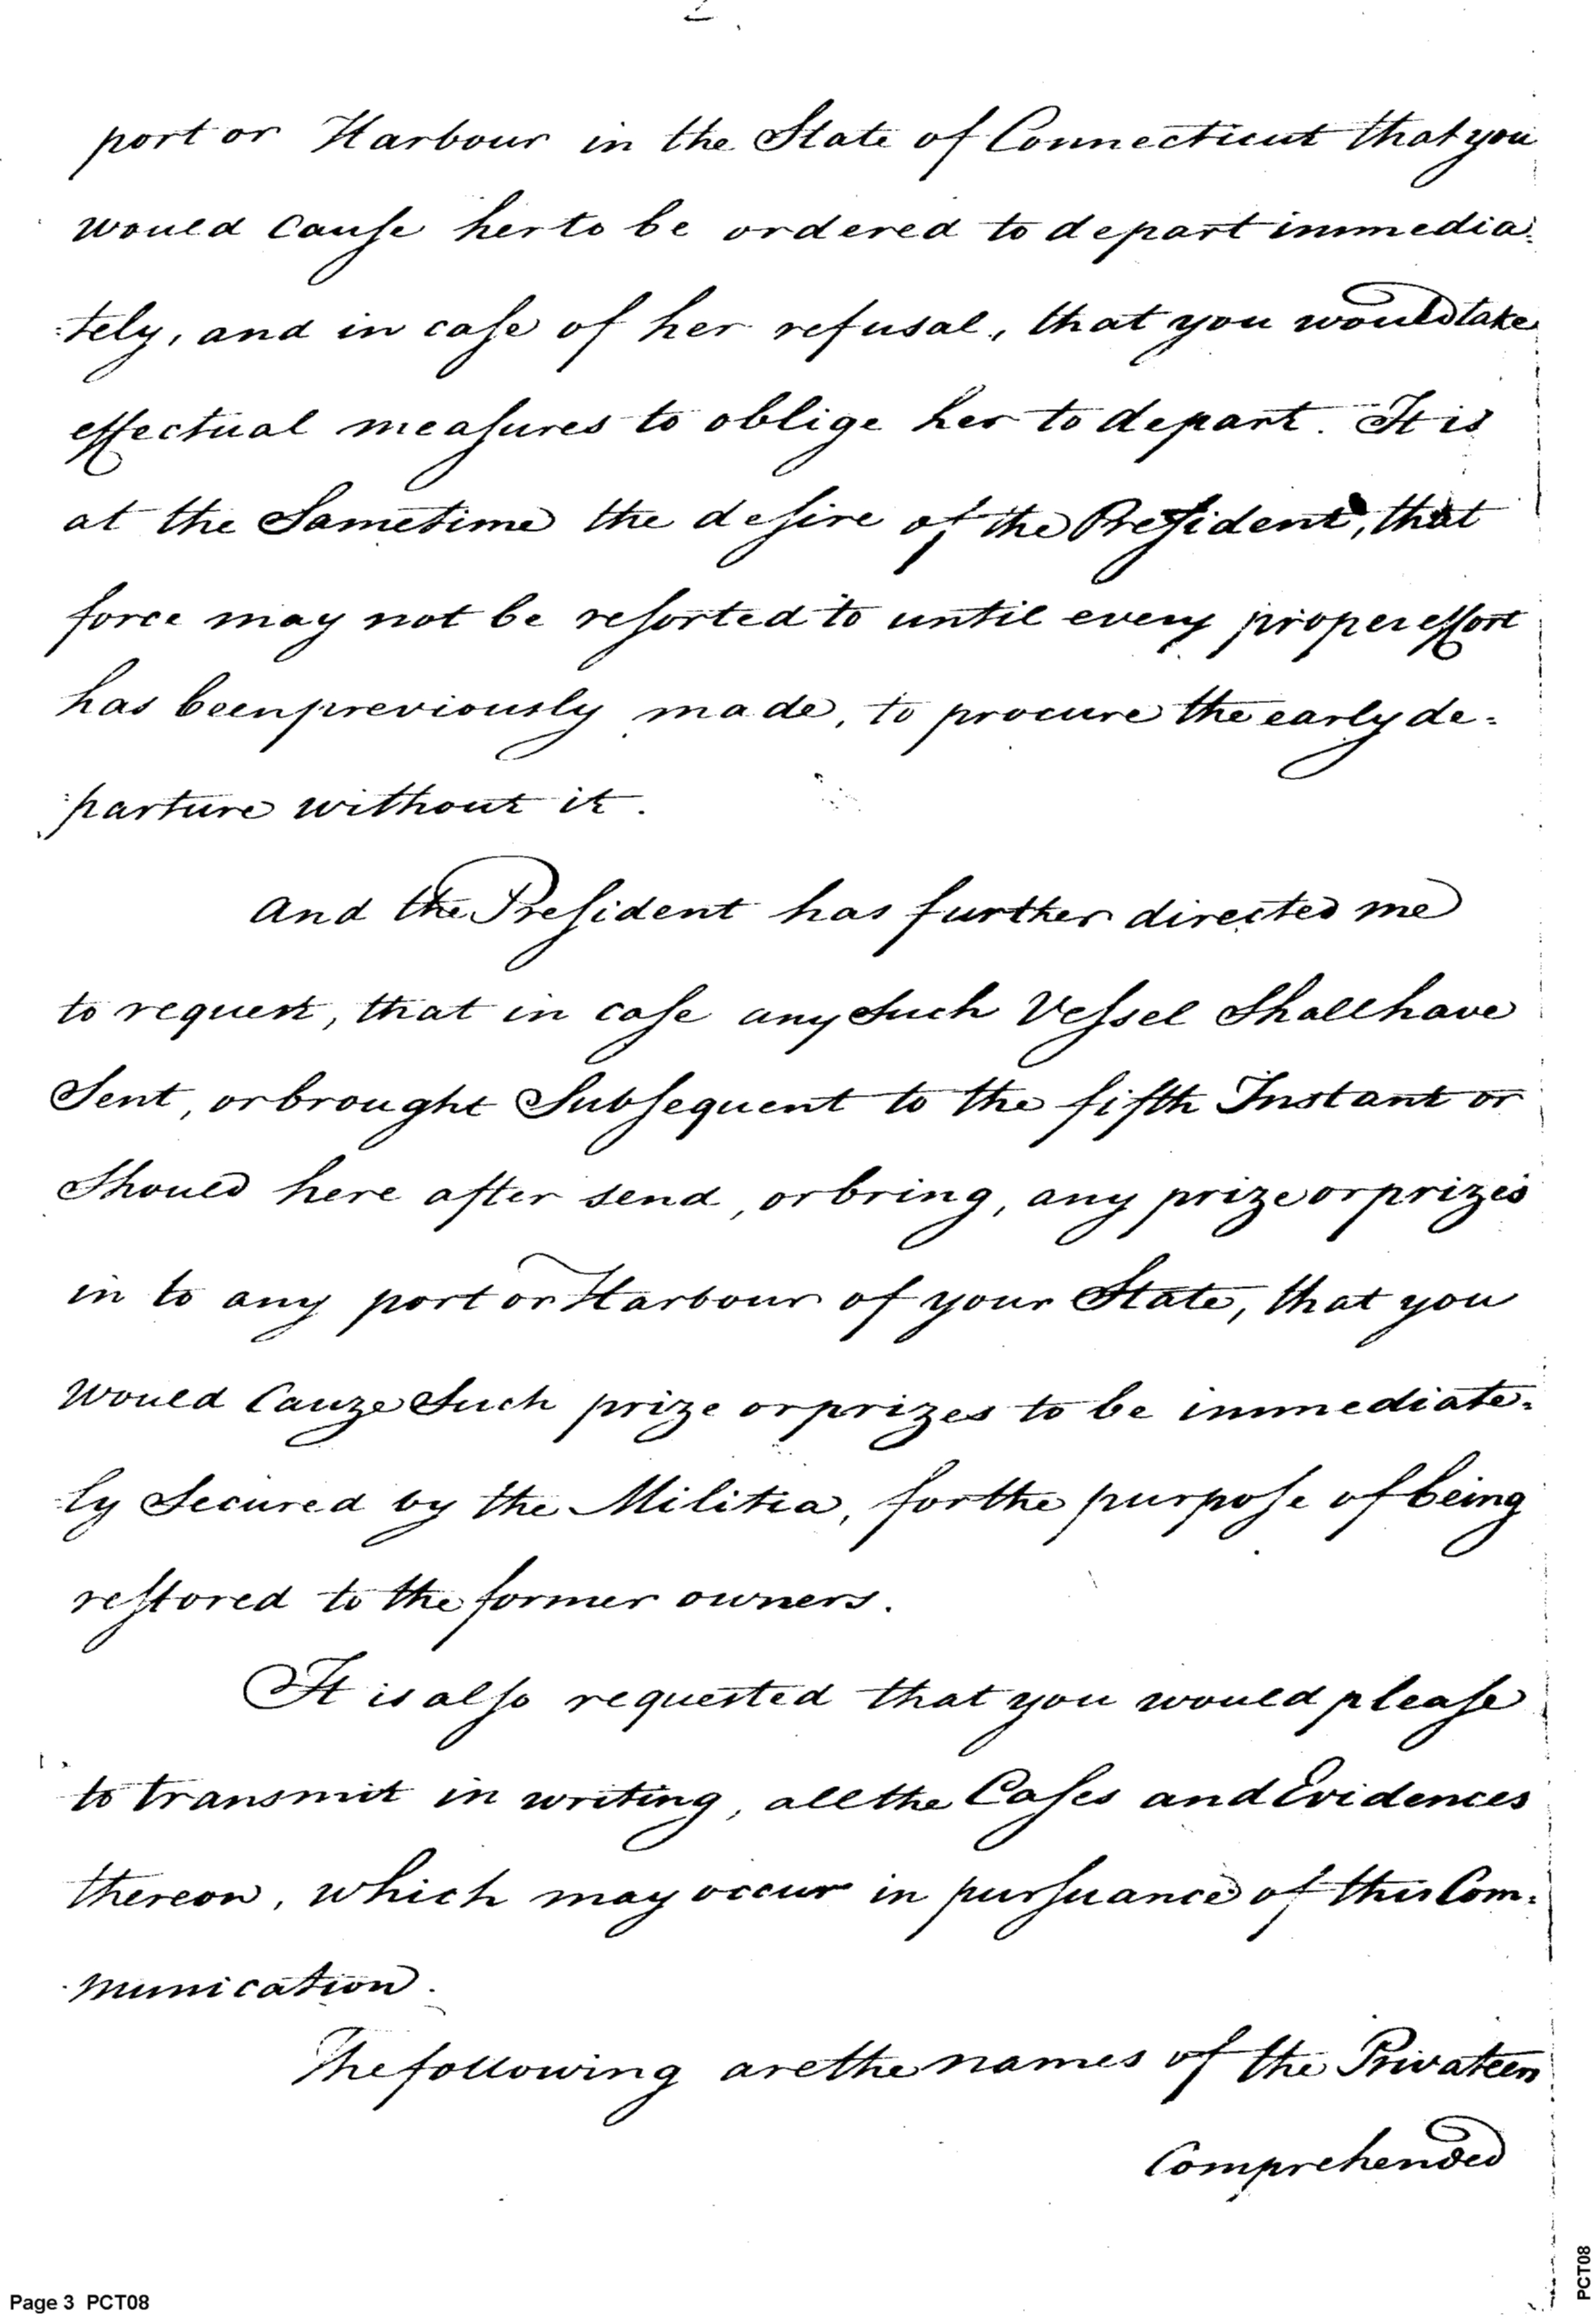 2
port or Harbour in the State of Connecticut that you
would Cause her to be ordered to depart immedia:
:tely, and in case of her refusal, that you would take
effectual measures to oblige her to depart. It is
at the Sametime the desire of the President, that
force may not be resorted to until every proper effort
has been previously made, to procure the early de:
:parture without it.
And the President has further directed me
to request, that in case any Such Vessel Shall have
Sent, or brought Subsequent to the fifth Instant or
Should here after send, or bring, any prize or prizes
in to any port or Harbour of your State, that you
would Cauze Such prize or prizes to be immediate:
:ly Secured by the Militia, for the purpose of being
restored to the former owners.
It is also requested that you would please
to transmit in writing, all the Cases and Evidences
thereon, which may occur in pursuance of this Com:
munication.
The following are the names of the Privateers
Comprehended
Page 3 PCT08
PCT08